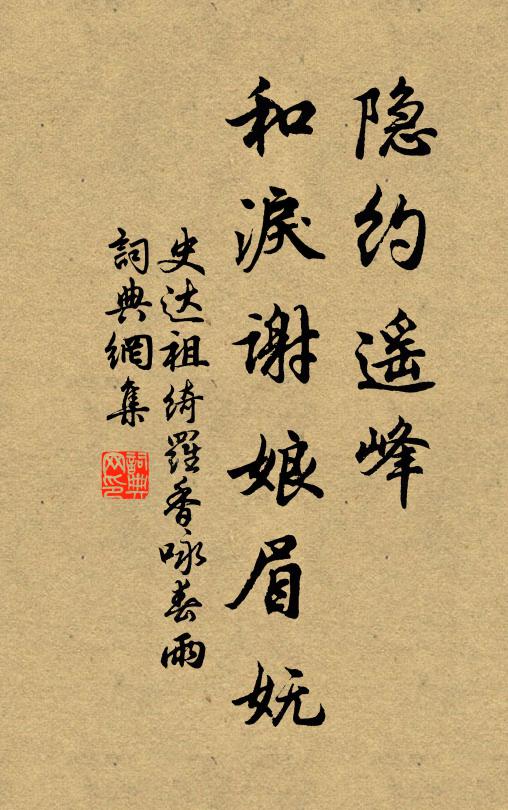 隐约遥峰
和淚谢娘眉妩
史达祖绮羅香咏春雨
詞典網集
詞典网印